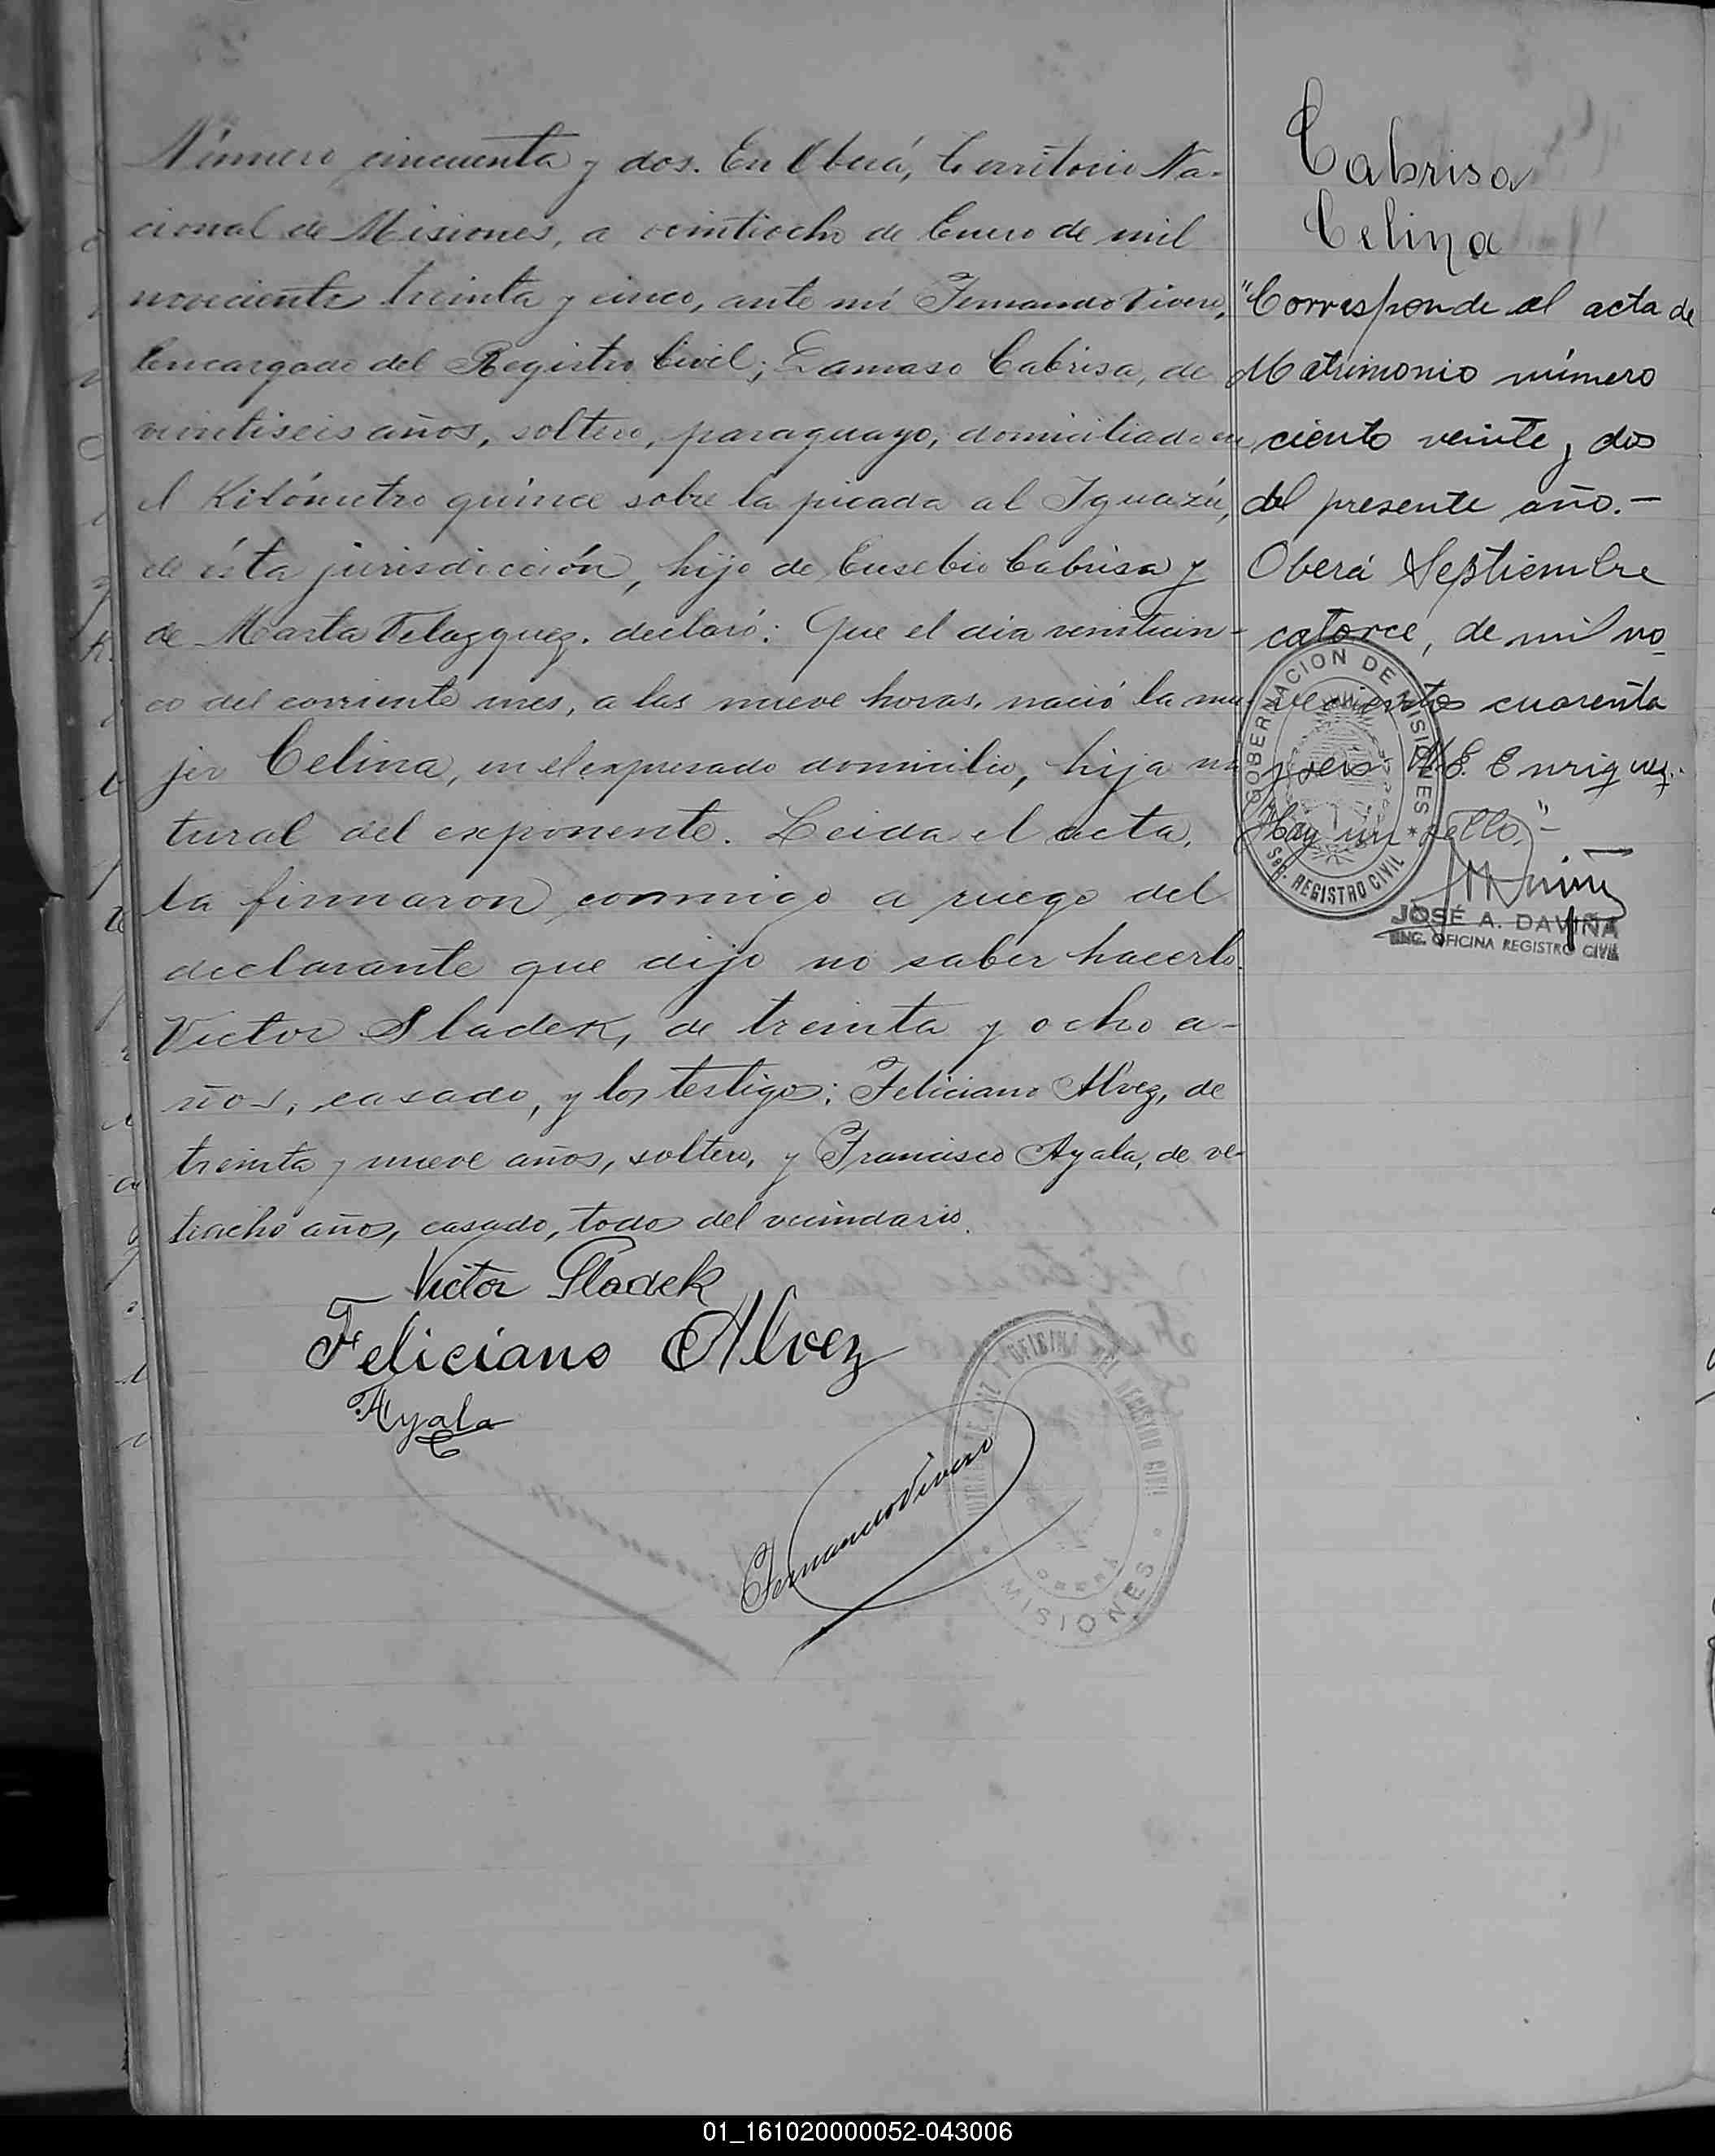 Número cincuenta y dos. En Oberá, Territorio Na-
cional de Misiones, a veintiocho de Enero de mil
novecientos treinta y cinco, ante mí Fernando Vivero,
Encargado del Registro Civil; Damaso Cabrisa, de
veintiseis años, soltero, paraguayo, domiciliado en
el Kilómetro quince sobre la picada al Iguazú,
de ésta jurisdicción, hijo de Eusebio Cabrisa y
de Marta Velazquez. declaró: Que el dia veinticin-
co del corriente mes, a las nueve horas, nació la mu-
jer Celina, en el expresado domicilio, hija na-
tural del exponente. Leida el acta,
la firmaron conmigo a ruego del
declarante que dijo no saber hacerlo
Victor Sladek, de treinta y ocho a-
ños, casado, y los testigos: Feliciano Alvez, de
treinta y nueve años, soltero, y Francisco Ayala, de ve-
tiocho años, casado, todos del vecindario.
Victor Sladek
Feliciano Alvez
F. Ayala
Fernando Vivero
OFICINA DEL REGISTRO CIVIL
OBERA
MISIONES
Cabrisa
Celina
"Corresponde al acta de
Matrimonio número
ciento veinte y dos
del presente año.-
Oberá Septiembre
catorce, de mil no
vecientos cuarenta
y seis M.E. Enriquez.
Hay un sello."-
GOBERNACION DE MISIONES
REGISTRO CIVIL
JOSÉ A. DAVIÑA
ENC. OFICINA REGISTRO CIVIL
01_161020000052-043006